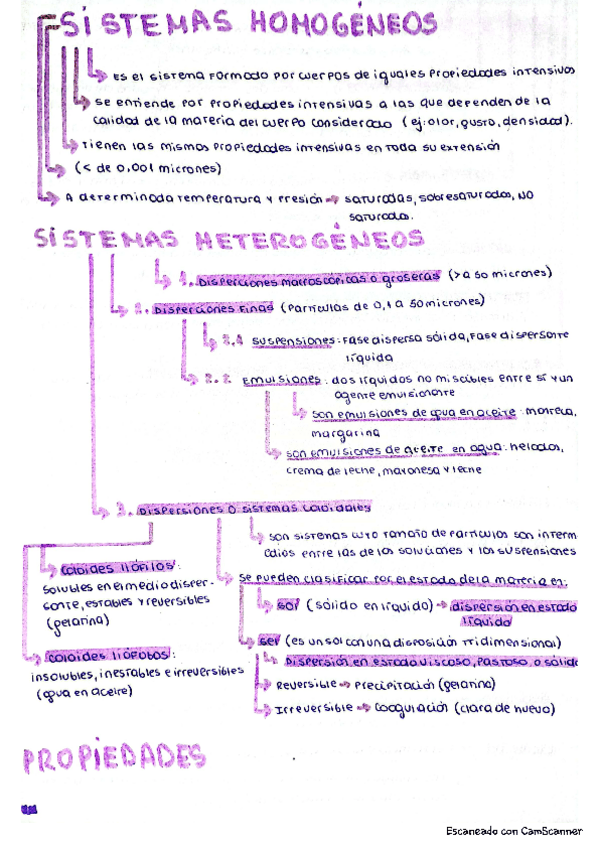 SISTEMAS HOMOGÉNEOS
Es el sistema formado por cuerpos de iguales propiedades intensivas
Se entiende por propiedades intensivas a las que dependen de la
calidad de la materia del cuerpo considerado (ej: olor, gusto, densidad).
Tienen las mismas propiedades intensivas en toda su extensión
(< de 0,001 micrones)
A determinada temperatura y presión → saturadas, sobresaturadas, NO
saturadas.
SISTEMAS HETEROGÉNEOS
1. Disperciones macroscópicas o groseras (> a 50 micrones)
2. Disperciones finas (Partículas de 0,1 a 50 micrones)
2.1 suspensiones: Fase dispersa sólida, Fase dispersante
líquida
2.2. Emulsiones: dos líquidos no miscibles entre sí y un
agente emulsionante
son emulsiones de agua en aceite: manteca,
margarina
son emulsiones de aceite en agua: helados,
crema de leche, mayonesa y leche
3. Dispersiones o sistemas coloidales
son sistemas cuyo tamaño de partículas son interm
edios entre las de las soluciones y las suspensiones
coloides liófilos:
solubles en el medio disper-
sante, estables y reversibles
(gelatina)
Se pueden clasificar por el estado de la materia en:
Sol (sólido en líquido) → dispersión en estado
líquido
coloides liófobos:
insolubles, inestables e irreversibles
(agua en aceite)
Gel (es un sol con una disposición tridimensional)
Dispersión en estado viscoso, pastoso o sólido
Reversible → Precipitación (gelatina)
Irreversible → Coagulación (clara de huevo)
PROPIEDADES
Escaneado con CamScanner